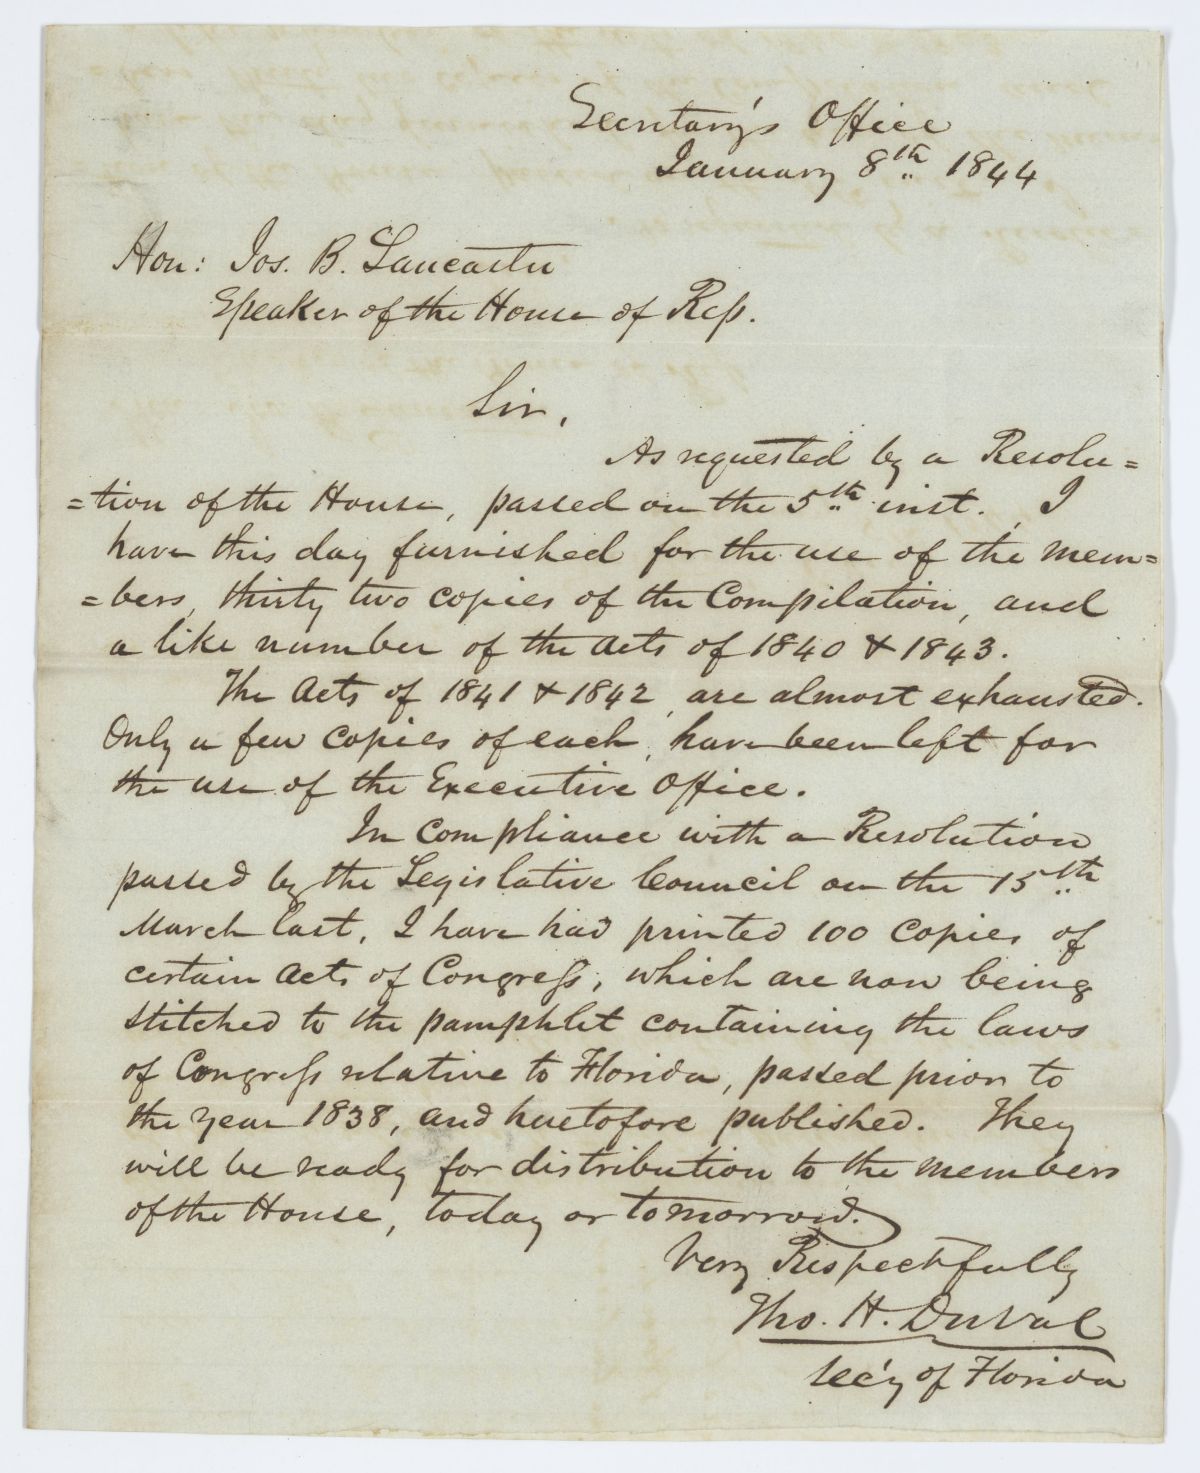 Secretary's Office
January 8th 1844
Hon: Jos. B. Lancaster
Speaker of the House of Rep.
Sir,
As requested by a Resolu=
=tion of the House, passed on the 5th inst., I
have this day furnished for the use of the mem=
=bers, thirty two copies of the Compilation, and
a like number of the Acts of 1840 & 1843.
The Acts of 1841 & 1842, are almost exhausted.
Only a few copies of each, have been left for
the use of the Executive Office.
In compliance with a Resolution
passed by the Legislative Council on the 15th
March last, I have had printed 100 copies of
certain Acts of Congress, which are now being
stitched to the pamphlet containing the laws
of Congress relative to Florida, passed prior to
the year 1838, and heretofore published. They
will be ready for distribution to the members
of the House, today or tomorrow.
Very Respectfully
Tho. H. DuVal
Sec'y of Florida